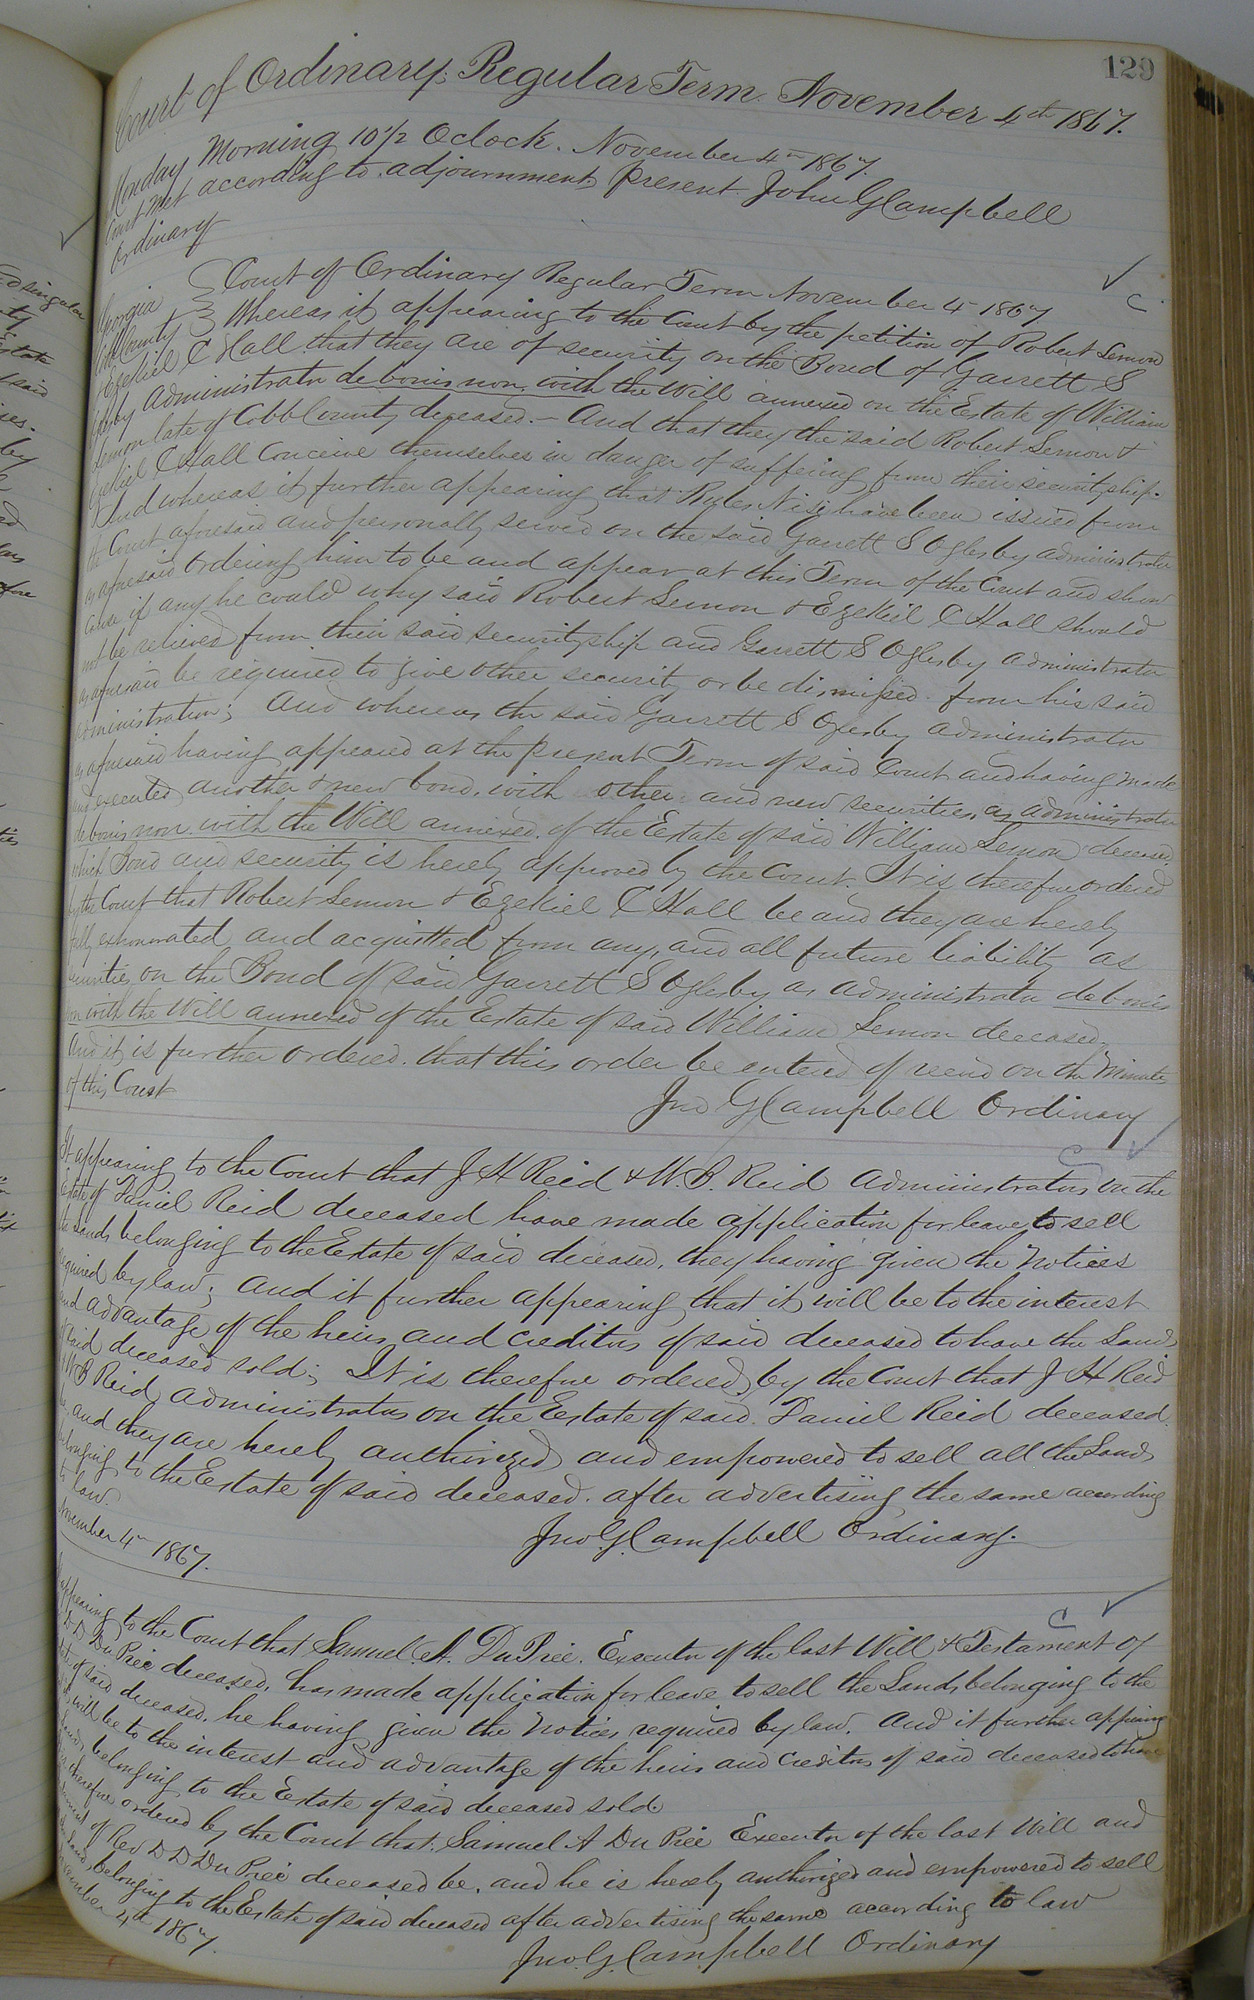 129
Court of Ordinary, Regular Term November 4th 1867.
Monday Morning 10 1/2 Oclock. November 4th 1867.
Court met according to adjournment, present John G Campbell
Ordinary
Georgia
Cobb County
Court of Ordinary Regular Term November 4th 1867
Whereas it appearing to the Court by the petition of Robert Lemon
& Ezekiel C Hall that they are of security on the Bond of Garrett S
Oglesby Administrator de bonis non with the Will annexed on the Estate of William
Lemon late of Cobb County deceased. - And that they the said Robert Lemon &
Ezekiel C Hall Conceive themselves in danger of suffering from their securityship.
And whereas it further appearing that Rules Nisi have been issued from
the Court aforesaid and personally served on the said Garrett S Oglesby administrator
as aforesaid ordering him to be and appear at this Term of the Court and show
cause if any he could why said Robert Lemon & Ezekiel C Hall should
not be relieved from their said securityship and Garrett S Oglesby administrator
as aforesaid be required to give other security or be dismissed from his said
administration; And whereas the said Garrett S Oglesby administrator
as aforesaid having appeared at the present Term of said Court and having made
and executed another & new bond, with other and new securities as administrator
de bonis non with the Will annexed of the Estate of said William Lemon deceased
which Bond and security is hereby approved by the Court. It is therefore ordered
by the Court that Robert Lemon & Ezekiel C Hall be and they are hereby
fully exonerated and acquitted from any, and all future liability as
securities on the Bond of said Garrett S Oglesby as administrator de bonis
non with the Will annexed of the Estate of said William Lemon deceased,
And it is further ordered that this order be entered of record on the Minutes
of this Court
Jno G Campbell Ordinary
It appearing to the Court that J H Reid & W. B. Reid administrators on the
Estate of Daniel Reid deceased have made application for leave to sell
the Lands belonging to the Estate of said deceased, they having given the Notices
required by law; and it further appearing that it will be to the interest
and advantage of the heirs and creditors of said deceased to have the Lands
of said deceased sold; It is therefore ordered by the Court that J H Reid
& W B Reid administrators on the Estate of said Daniel Reid deceased
be, and they are hereby authorized and empowered to sell all the Lands
belonging to the Estate of said deceased after advertising the same according
to law.
November 4th 1867.
Jno. G. Campbell Ordinary.
appearing to the Court that Samuel A. DuPree, Executor of the last Will & Testament of
D D DuPree deceased, has made application for leave to sell the Lands belonging to the
of said deceased, he having given the Notices required by law. And it further appearing
it will be to the interest and advantage of the heirs and creditors of said deceased to have
belonging to the Estate of said deceased sold
therefore ordered by the Court that Samuel A DuPree Executor of the last Will and
of Rev D D DuPree deceased be, and he is hereby authorized and empowered to sell
belonging to the Estate of said deceased after advertising the same according to law
November 4th 1867.
Jno. G. Campbell Ordinary